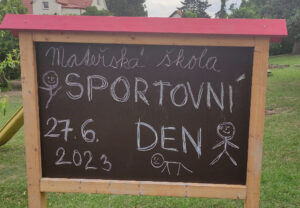 Mateřská škola
SPORTOVNÍ
27.6. DEN
2023